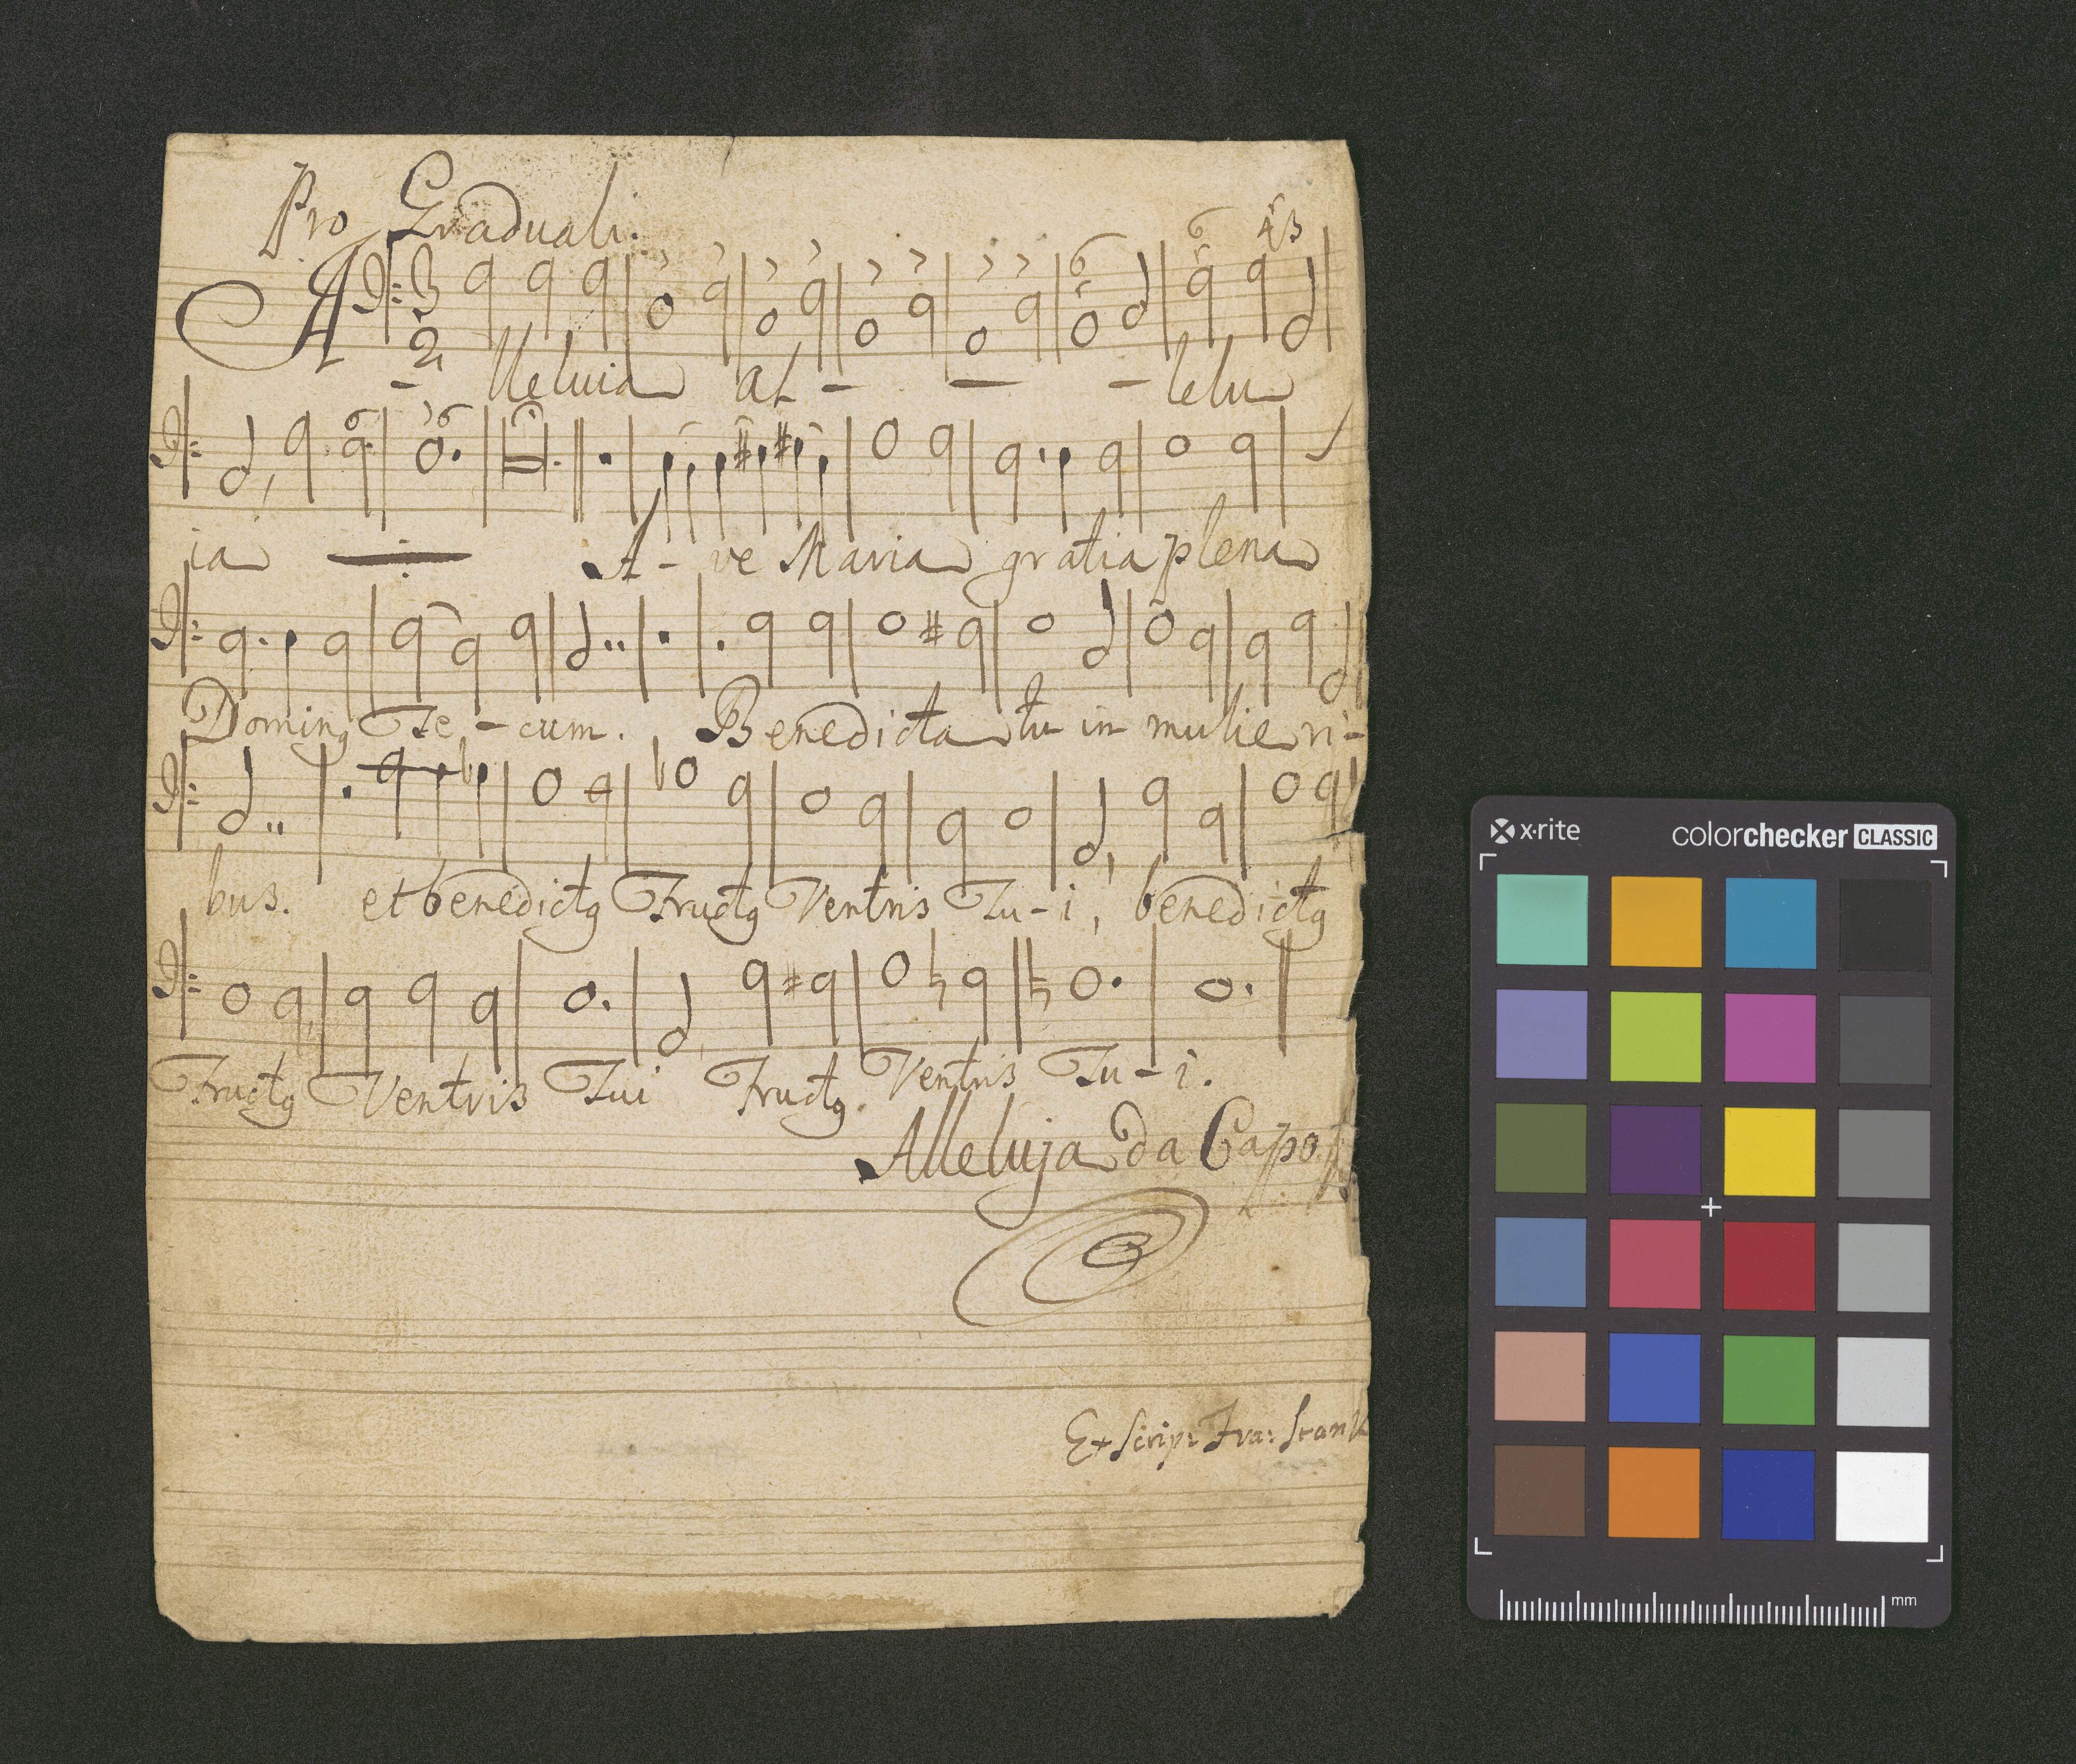 Pro Graduali.
A - lleluia al - - - lelu
ia Ave Maria gratia plena
Dominꝯ Te - cum. Benedicta tu in mulieri -
bus. et benedictꝯ Fructꝯ Ventris Tu - i, benedictꝯ
Fructꝯ Ventris Tui Fructꝯ Ventris Tu - i.
Alleluja da Capo
x·rite
colorchecker CLASSIC
mm